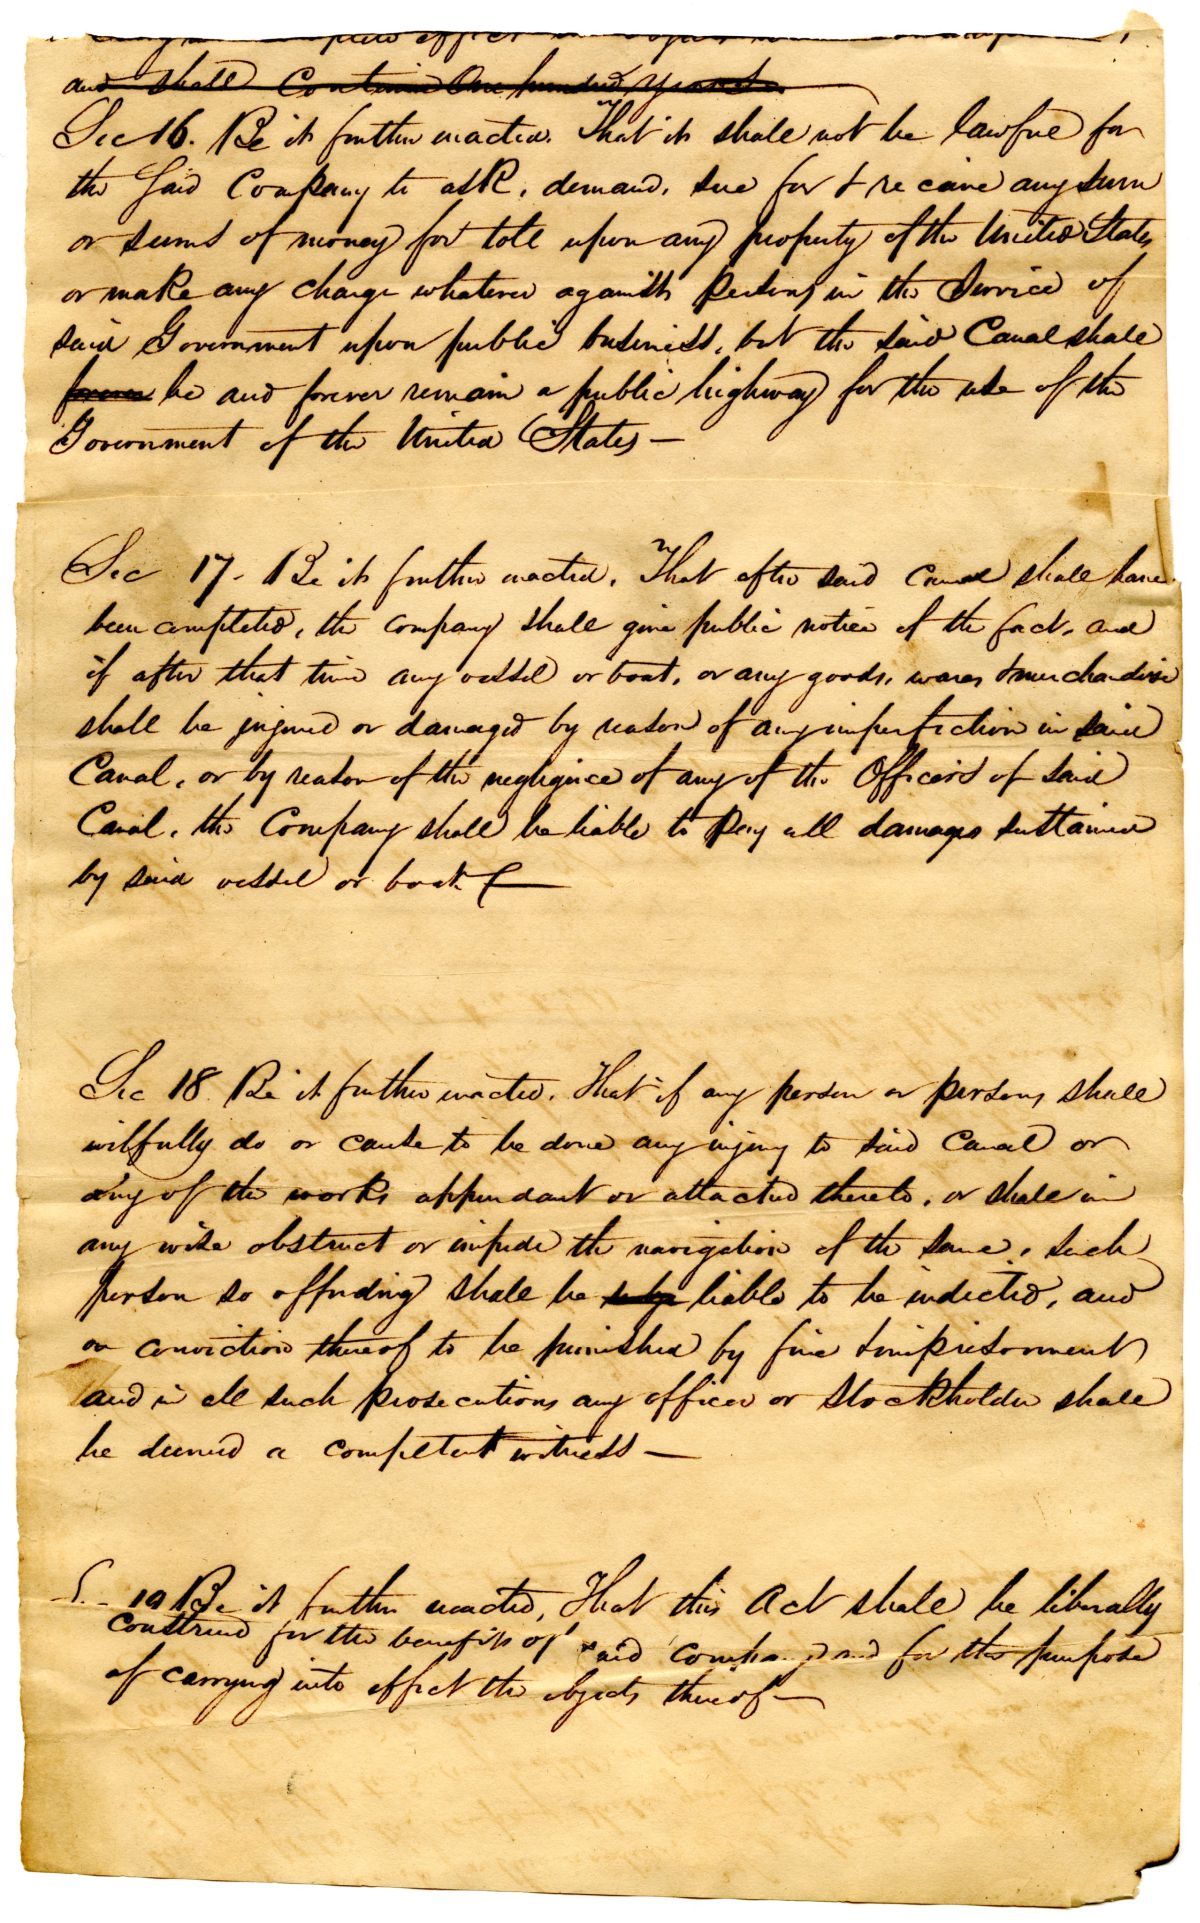 and shall Continue One hundred years
Sec 16. Be it further enacted. That it shall not be lawful for
the Said Company to ask, demand, sue for & receive any sum
or sums of money for tole upon any property of the United States
or make any charge whatever against persons in the Service of
said Government upon public business, but the said Canal shall
forever be and forever remain a public highway for the use of the
Government of the United States —
Sec 17 - Be it further enacted, That after said Canal shall have
been completed, the company shall give public notice of the fact, and
if after that time any vessel or boat, or any goods, wares & merchandise
shall be injured or damaged by reason of any imperfection in said
Canal, or by reason of the negligence of any of the Officers of said
Canal, the Company shall be liable to pay all damages sustained
by said vessel or boat. —
Sec 18 Be it further enacted, That if any person or persons shall
wilfully do or cause to be done any injury to said Canal or
any of the works appendant or attacted thereto, or shall in
any wise obstruct or impede the navigation of the same, such
person so offending shall be liable to be indicted, and
on conviction thereof to be punished by fine & imprisonment
and in all such prosecutions any officer or stockholder shall
be deemed a competent witness —
19 Be it further enacted, That this Act shall be liberally
construed for the benefits of said company and for the purpose
of carrying into effect the objects thereof —